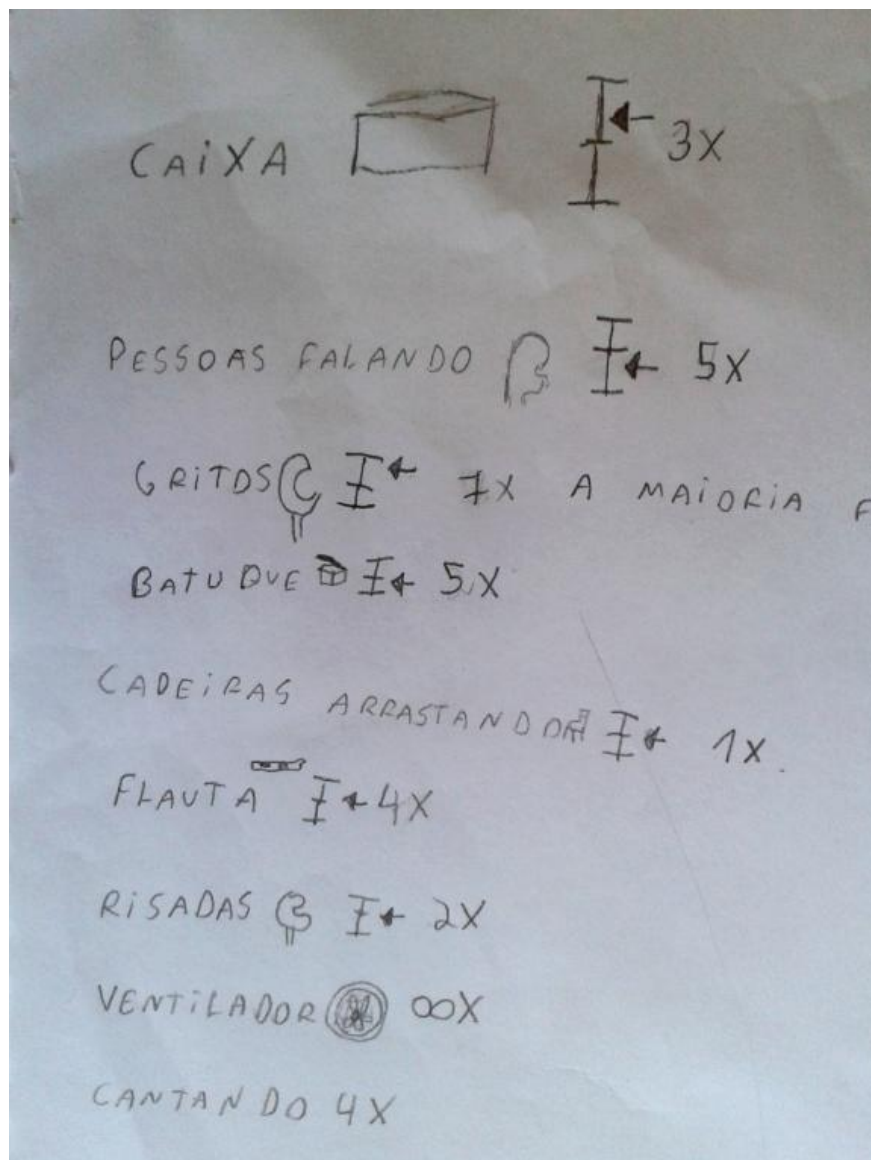 CAIXA 3X
PESSOAS FALANDO 5X
GRITOS 7X A MAIORIA F
BATUQUE 5X
CADEIRAS ARRASTANDO 1X
FLAUTA 4X
RISADAS 2X
VENTILADOR ∞X
CANTANDO 4X